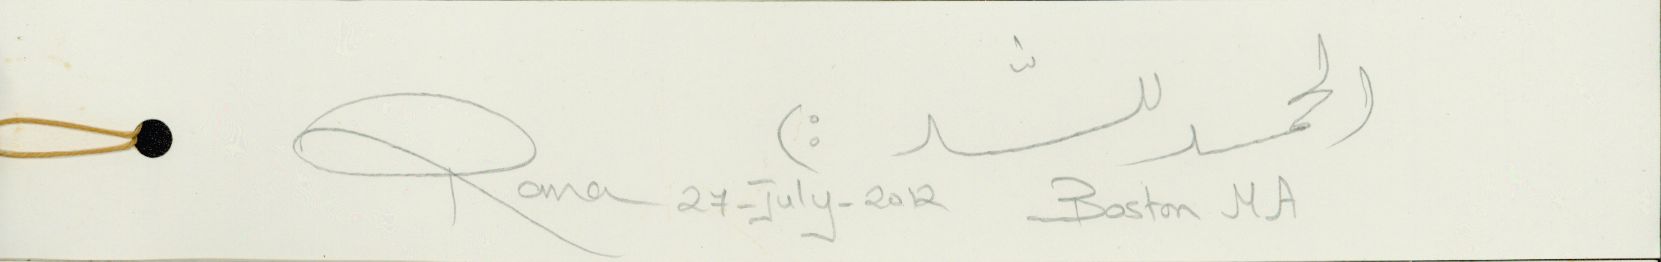 الحمد لله :)
Roma 27-July-2012 Boston MA